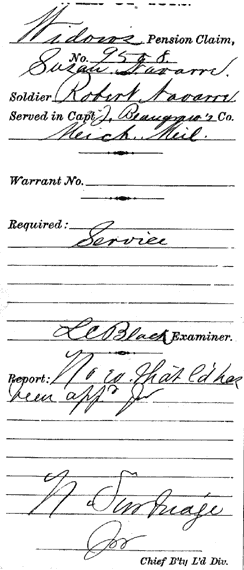 Widow's Pension Claim,
No. 9568.
Susan Navarre.
Soldier Robert Navarre
Served in Capt J. Beaugrow's Co.
Mich. Mil.
Warrant No.
Required:
Service
L C Black Examiner.
Report: No that l'd has
been app'd for
N.
for
Chief B'ty L'd Div.